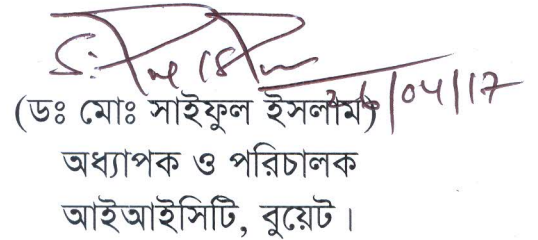 /04/17
(ডঃ মোঃ সাইফুল ইসলাম)
অধ্যাপক ও পরিচালক
আইআইসিটি, বুয়েট।